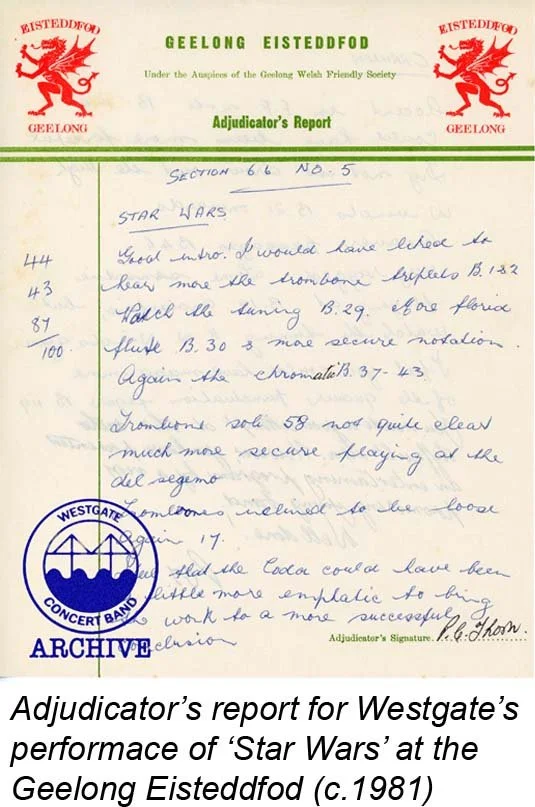 EISTEDDFOD
GEELONG
EISTEDDFOD
GEELONG
GEELONG EISTEDDFOD
Under the Auspices of the Geelong Welsh Friendly Society
Adjudicator's Report
SECTION 66 NO. 5
STAR WARS
44
43
87
100
Good intro! I would have liked to
hear more the trombone triplets B. 1 & 2
Watch the tuning B. 29. More florid
flute B. 30 & more secure notation.
Again the chromatic B. 37 - 43
Trombone soli 58 not quite clear
much more secure playing at the
del segemo
Trombones inclined to be loose
again 17.
that the Coda could have been
little more emphatic to bring
work to a more successful
conclusion
WESTGATE
CONCERT BAND
ARCHIVE
Adjudicator's Signature. P. C. Thorn.
Adjudicator's report for Westgate's
performace of 'Star Wars' at the
Geelong Eisteddfod (c.1981)